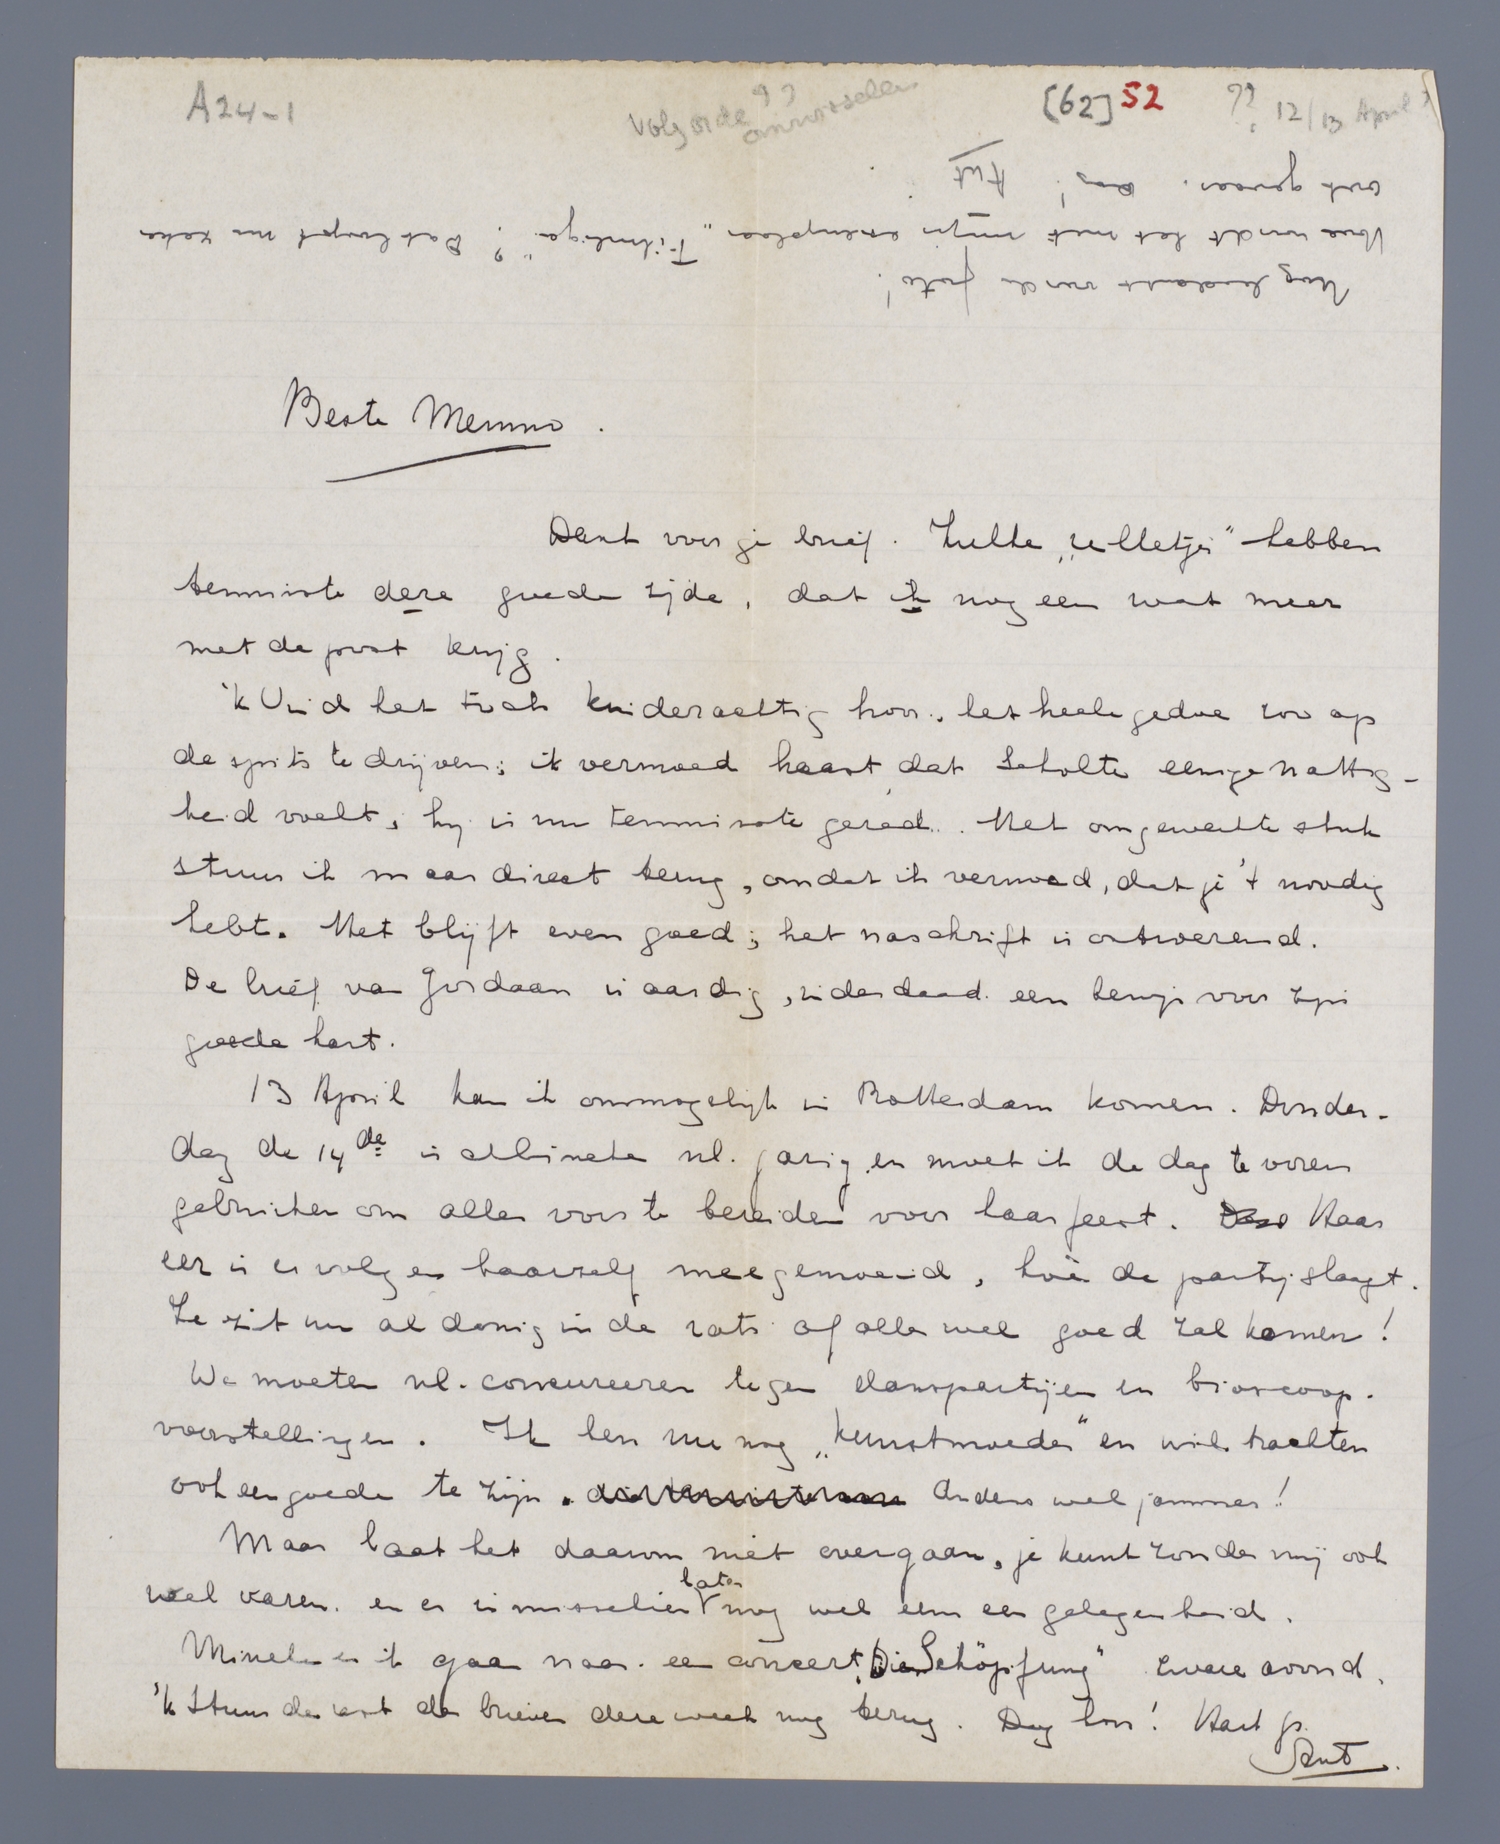 A24-1
volgorde omwisselen ??
[62] 52 ?? 12/13 April?
Beste Menno.
Dank voor je brief. Zulke „relletjes" hebben
tenminste deze goede zijde, dat ik nog eens wat meer
met de post krijg.
'k Vind het toch kinderachtig hoor, het heele gedoe zoo op
de spits te drijven; ik vermoed haast, dat Scholte eenige nattig-
heid voelt, hij is nu tenminste gered. Het omgewerkte stuk
stuur ik maar direct terug, omdat ik vermoed, dat je 't noodig
hebt. Het blijft even goed; het naschrift is ontwarend.
De brief van Jordaan is aardig, inderdaad een bewijs voor zijn
goede hart.
13 April kan ik onmogelijk in Rotterdam komen. Donder-
dag de 14de is nl. jarig en moet ik de dag te voren
gebruiken om alles voor te bereiden voor haar feest. Haar
eer is er volgens haarzelf meegemoeid, hoe de partij slaagt.
Ze zit nu al danig in de rats of alles wel goed zal komen!
We moeten nl. concureeren tegen danspartijen en bioscoop-
voorstellingen. Ik ben nu nog „kunstmoeder" en wil trachten
ook een goede te zijn. Anders wel jammer!
Maar laat het daarom niet overgaan, je kunt zonder mij ook
wel varen. en er is misschien later nog wel eens een gelegenheid.
en ik gaan naar een concert „Die Schöpfung" avond.
'k Stuur de rest der brieven deze week nog terug. Dag hoor! Hart gr.
Ant.
Nog bedankt voor de foto!
Hoe vordt het met mijn exemplaar „Filmliga"? Dat loopt nu zeker
ook gevaar. Dag! Ant